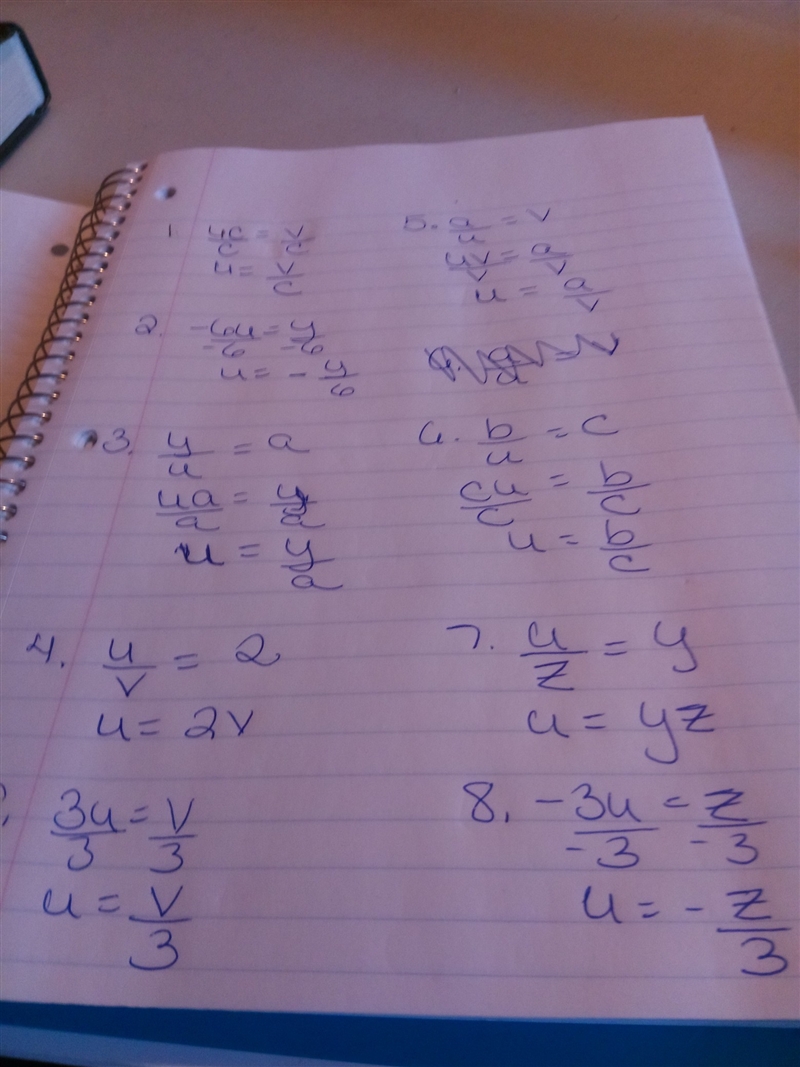 1. uc/c = v/c
u = v/c
2. -6u/-6 = y/-6
u = - y/6
3. y/u = a
ua/a = y/a
u = y/a
4. u/v = 2
u = 2v
3u/3 = v/3
u = v/3
5. a/u = v
uv/v = a/v
u = a/v
6. b/u = c
cu/c = b/c
u = b/c
7. u/z = y
u = yz
8. -3u/-3 = z/-3
u = - z/3